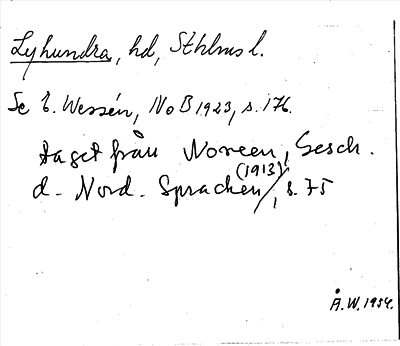 Lyhundra, hd, Sthlms l.
Se E. Wessén, NoB 1923, s. 176.
taget från Noreen, Gesch.
d. Nord. Sprachen (1913), s. 75
Å.W. 1954.